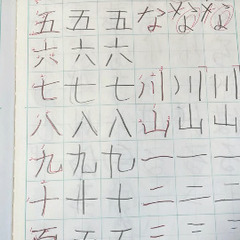 五 五 五 な な な
六 六 六
七 七 七 川 川 川
八 八 八 山 山 山
九 九 九 一 一 一
十 十 十 二 二 二